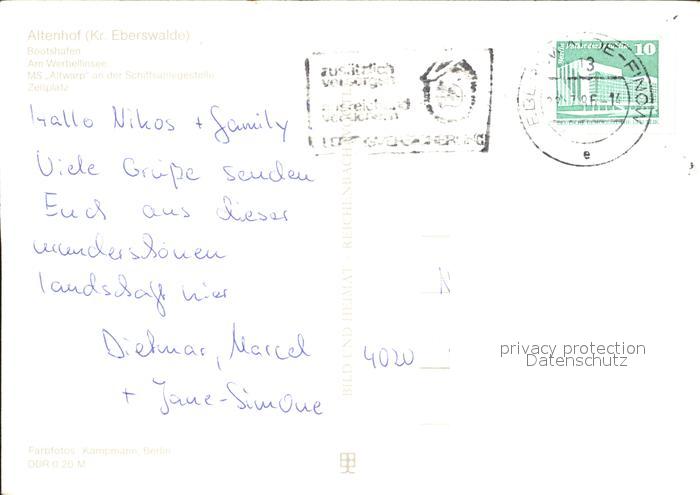 Altenhof (Kr. Eberswalde)
Bootshafen
Am Werbellinsee
MS „Altwarp" an der Schiffsanlegestelle
Zeltplatz
Hallo Nikos + Family
Viele Grüße senden
Euch aus dieser
wunderschönen
Landschaft hier
Dietmar, Marcel
+ Jane-Simone
Farbfotos: Kampmann, Berlin
DDR 0,20 M
BILD UND HEIMAT · REICHENBACH
zusätzlich
versorgt
10
13
e
N
4020
privacy protection
Datenschutz